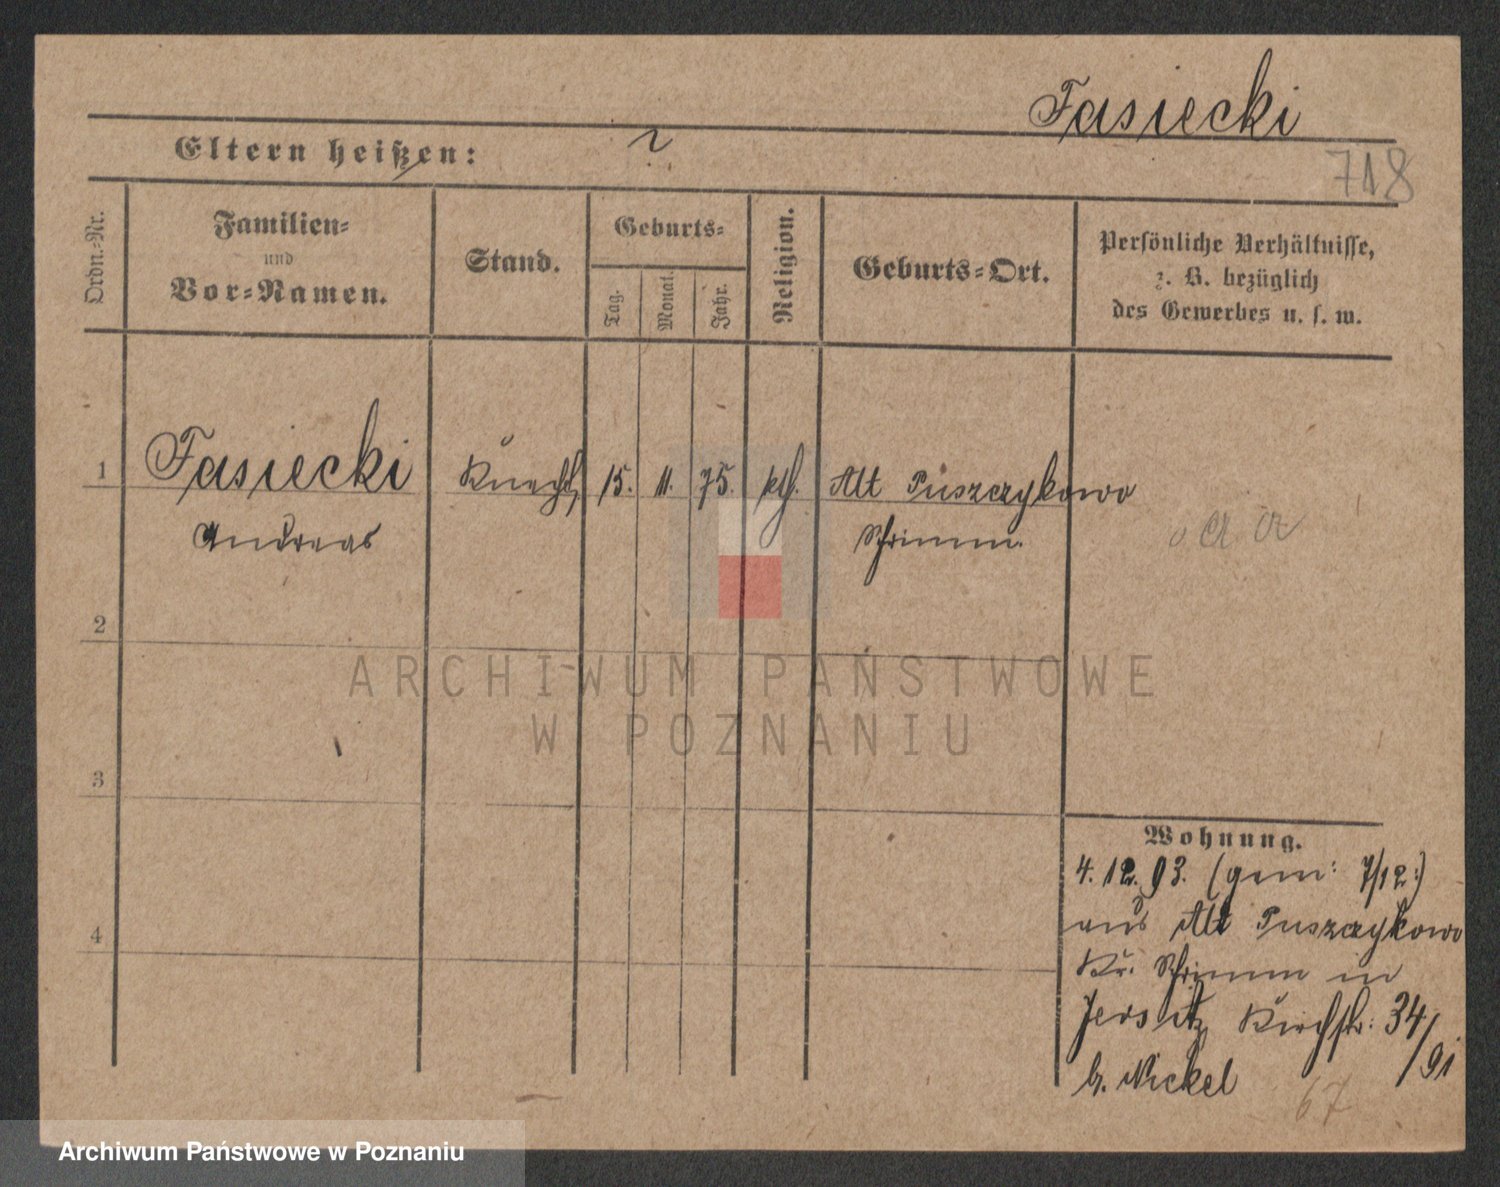 Fasiecki
Eltern heißen:
718
Ordn.-Nr.
Familien-
und
Vor-Namen.
Stand.
Geburts-
Tag.
Monat.
Jahr.
Religion.
Geburts-Ort.
Persönliche Verhältnisse,
z. B. bezüglich
des Gewerbes u. s. w.
1 Fasiecki Knecht 15. 11. 75. kth. Alt Puszczykowo
Andreas Schrimm.
2
ARCHIWUM PAŃSTWOWE
W POZNANIU
3
Wohnung.
4. 12. 93. (gem: 7/12:)
aus Alt Puszczykowo
4
Kr. Schrimm in
Jersitz Kirchstr: 34/91
b. Nickel
67
Archiwum Państwowe w Poznaniu